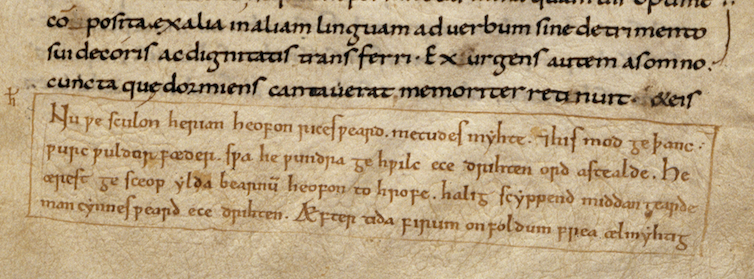 cō posita. ex alia in aliam linguam ad uerbum sine detrimento
sui decoris ac dignitatis transferri. Exurgens autem a somno.
cuncta que dormiens cantauerat memoriter retinuit. & eis
Nu ƿe sculon herian heofon rices ƿeard. metudes mẏhte. ⁊ his mod ge þanc.
ƿurc ƿuldor fæder. sƿa he ƿundra ge hƿilc ece drihten ord astealde. He
ærest ge sceop ẏlda bearnū heofon to hrofe. halig scẏppend middan gearde
man cẏnnes ƿeard ece drihten. Æfter tida firum on foldum frea ælmẏhtig